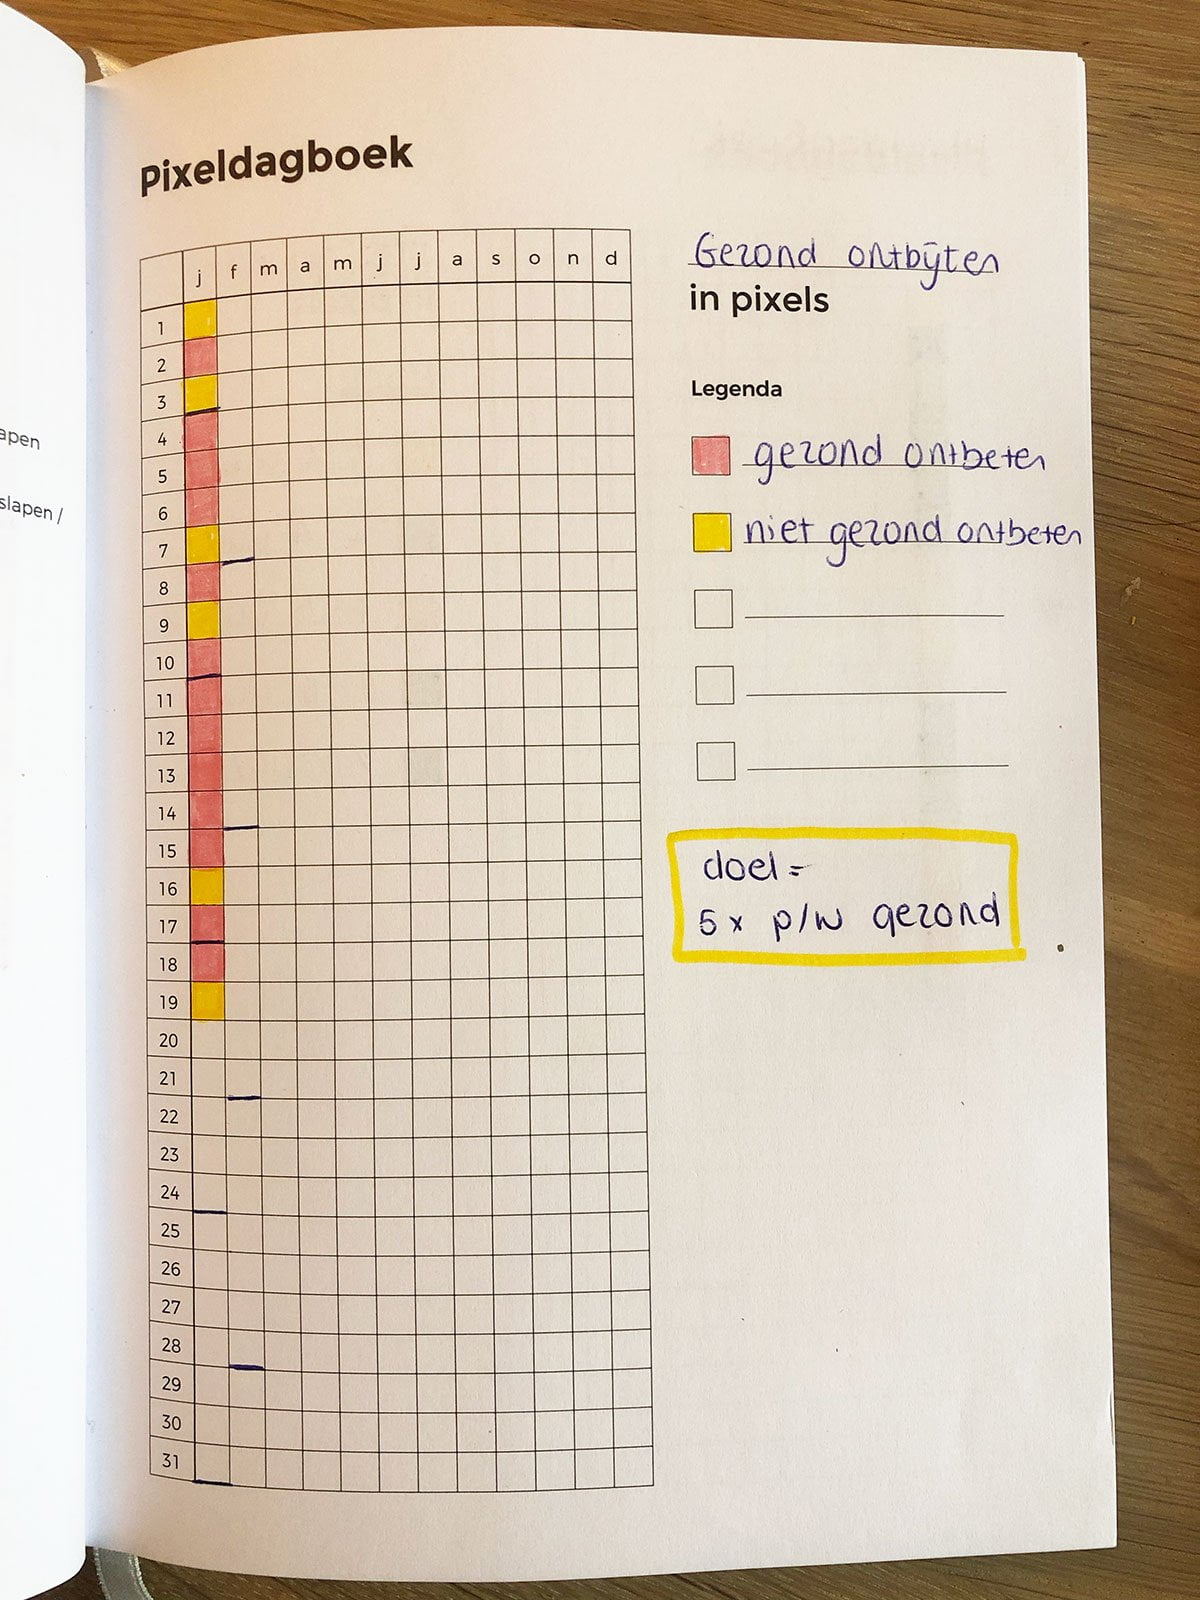 apen
slapen /
Pixeldagboek
j f m a m j j a s o n d
1
2
3
4
5
6
7
8
9
10
11
12
13
14
15
16
17
18
19
20
21
22
23
24
25
26
27
28
29
30
31
Gezond ontbijten
in pixels
Legenda
gezond ontbeten
niet gezond ontbeten
doel =
5 x p/w gezond